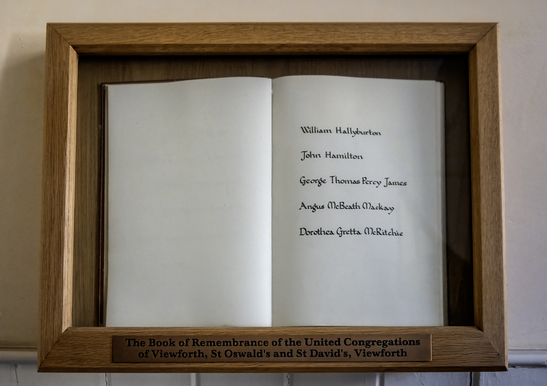 William Hallyburton
John Hamilton
George Thomas Percy James
Angus McBeath Mackay
Dorothea Gretta McRitchie
The Book of Remembrance of the United Congregations
of Viewforth, St Oswald's and St David's, Viewforth